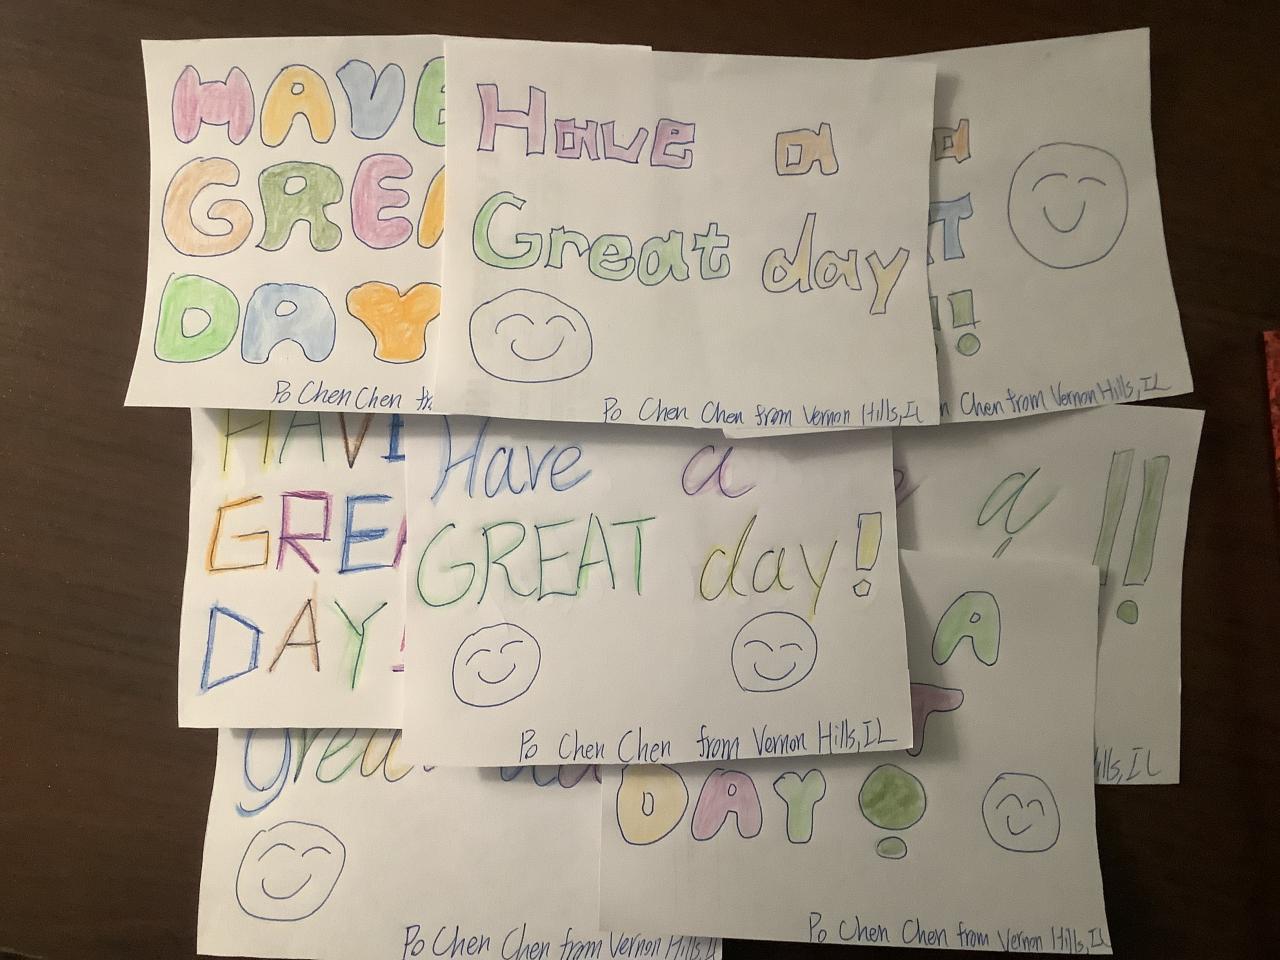 HAVE
GREA
DAY
Po Chen Chen fr
Have a
Great day
Po Chen Chen from Vernon Hills, IL
a
T
!
n Chen from Vernon Hills, IL
HAVE
GREA
DAY!
Have a
GREAT day!
Po Chen Chen from Vernon Hills, IL
e a !!
ills, IL
great da
Po Chen Chen from Vernon Hills, IL
A
T
DAY!
Po Chen Chen from Vernon Hills, IL